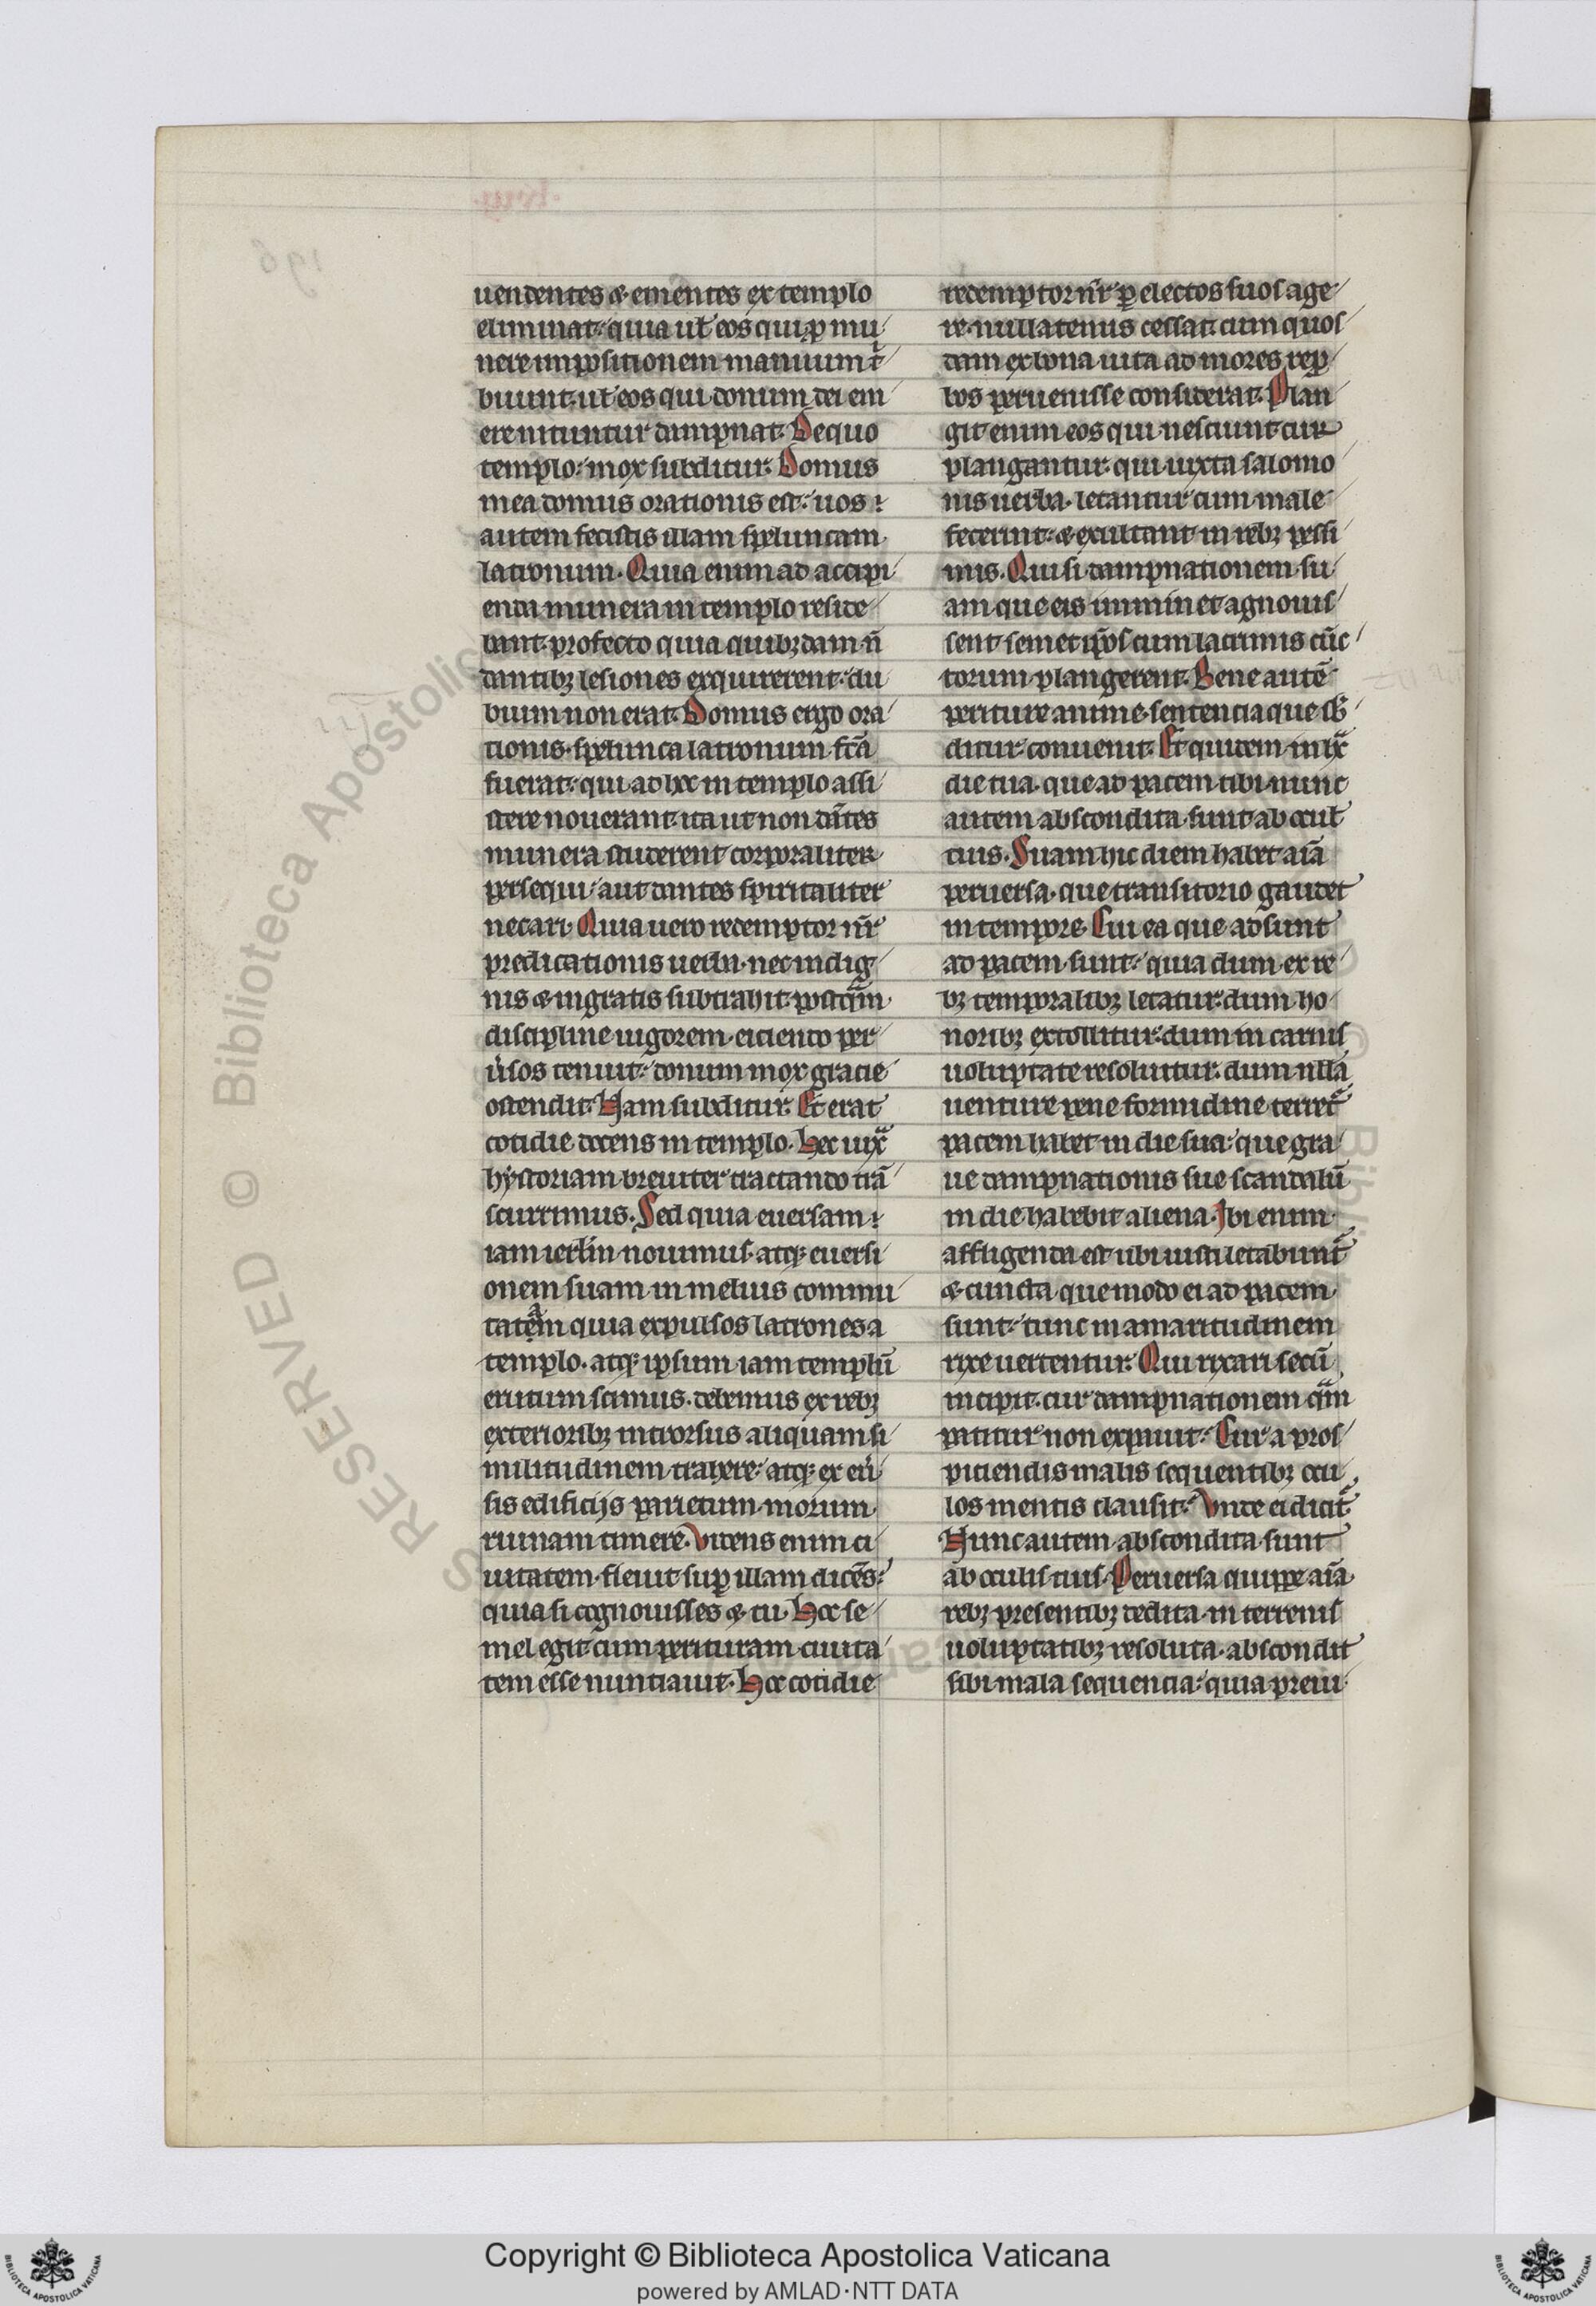 uendentes & ementes ex templo
eliminat. quia ul' eos qui p mu
nere impositionem manuum t̾
buunt. ul' eos qui donum dei em
ere nituntur dampnat. De quo
templo. mox subditur. Domus
mea domus orationis est. uos
autem fecistis illam speluncam
latronum. Quia enim ad accipi
enda munera in templo reside
bant. profecto quia quibꝫdam n̄
dantibꝫ lesiones exquirerent. du
bium non erat. Domus ergo ora
tionis. spelunca latronum fc̄a
fuerat. qui ad hoc in templo assi
stere nouerant. ita ut non dn̄tes
munera studerent corporaliter
persequi. aut dantes spiritaliter
necari. Quia uero redemptor nr̄
predicationis uerba. nec indig
nis & ingratis subtrahit. postqᵃm
discipline uigorem. eiciendo per
u̾sos tenuit. donum mox gracie
ostendit. Nam subditur. Et erat
cotidie docens in templo. Hec iuxᵃ
hystoriam breuiter tractando trā
scurrimus. Sed quia euersam
iam ierlm̄ nouimus. atqꝫ euersi
onem suam in melius commu
tatᵃm quia expulsos latrones a
templo. atqꝫ ipsum iam templū
erutum scimus. debemus ex rebꝫ
exterioribꝫ introrsus aliquam si
militudinem trahere. atqꝫ ex eu̾
sis edificijs parietum. morum
ruinam timere. Videns enim ci
uitatem. fleuit sup illam dicēs.
quia si cognouisses & tu. Hoc se
mel egit cum perituram ciuita
tem esse nuntiauit. Hoc cotidie
redemptor nr̄ p electos suos age
re. nullatenus cessat. cum quos
dam ex bona uita ad mores repo
bos peruenisse considerat. Plan
git enim eos qui nesciunt cur
plangantur. qui iuxta salomo
nis uerba. letantur cum male
fecerint. & exultant in rebꝫ pessi
mis. Qui si dampnationem su
am que eis imminet agnouis
sent. semet ip̄os cum lacrimis cūc
torum plangerent. Bene autē
periture anime. sentencia que sb̾
ditur conuenit. Et quidem in hᵃc
die tua. que ad pacem tibi. nunc
autem abscondita sunt ab ocul'
tuis. Suam hic diem habet aīa
peruersa. que transitorio gaudet
in tempore. Cui ea que adsunt
ad pacem sunt. quia dum ex re
bꝫ temporalibꝫ letatur. dum ho
noribꝫ extollitur. dum in carnis
uoluptate resoluitur. dum nllā
uenture pene formidine terret̾
pacem habet in die sua. que gra
ue dampnationis sue scandalū
in die habebit aliena. Ibi enim
affligenda est ubi iusti letabunt̾
& cuncta que modo ei ad pacem
sunt. tunc in amaritudinem
rixe uertentur. Qui rixari secū
incipit. cur dampnationem qᵃm
patitur non expauit. Cur a pros
piciendis malis sequentibꝫ ocu
los mentis clausit. Vnde ei dicit̾
Nunc autem abscondita sunt
ab oculis tuis. Peruersa quippe aīa
rebꝫ presentibꝫ dedita. in terrenis
uoluptatibꝫ resoluta. abscondit
sibi mala sequencia. quia preui
© Biblioteca Apostolica
RESERVED
Copyright © Biblioteca Apostolica Vaticana
powered by AMLAD·NTT DATA